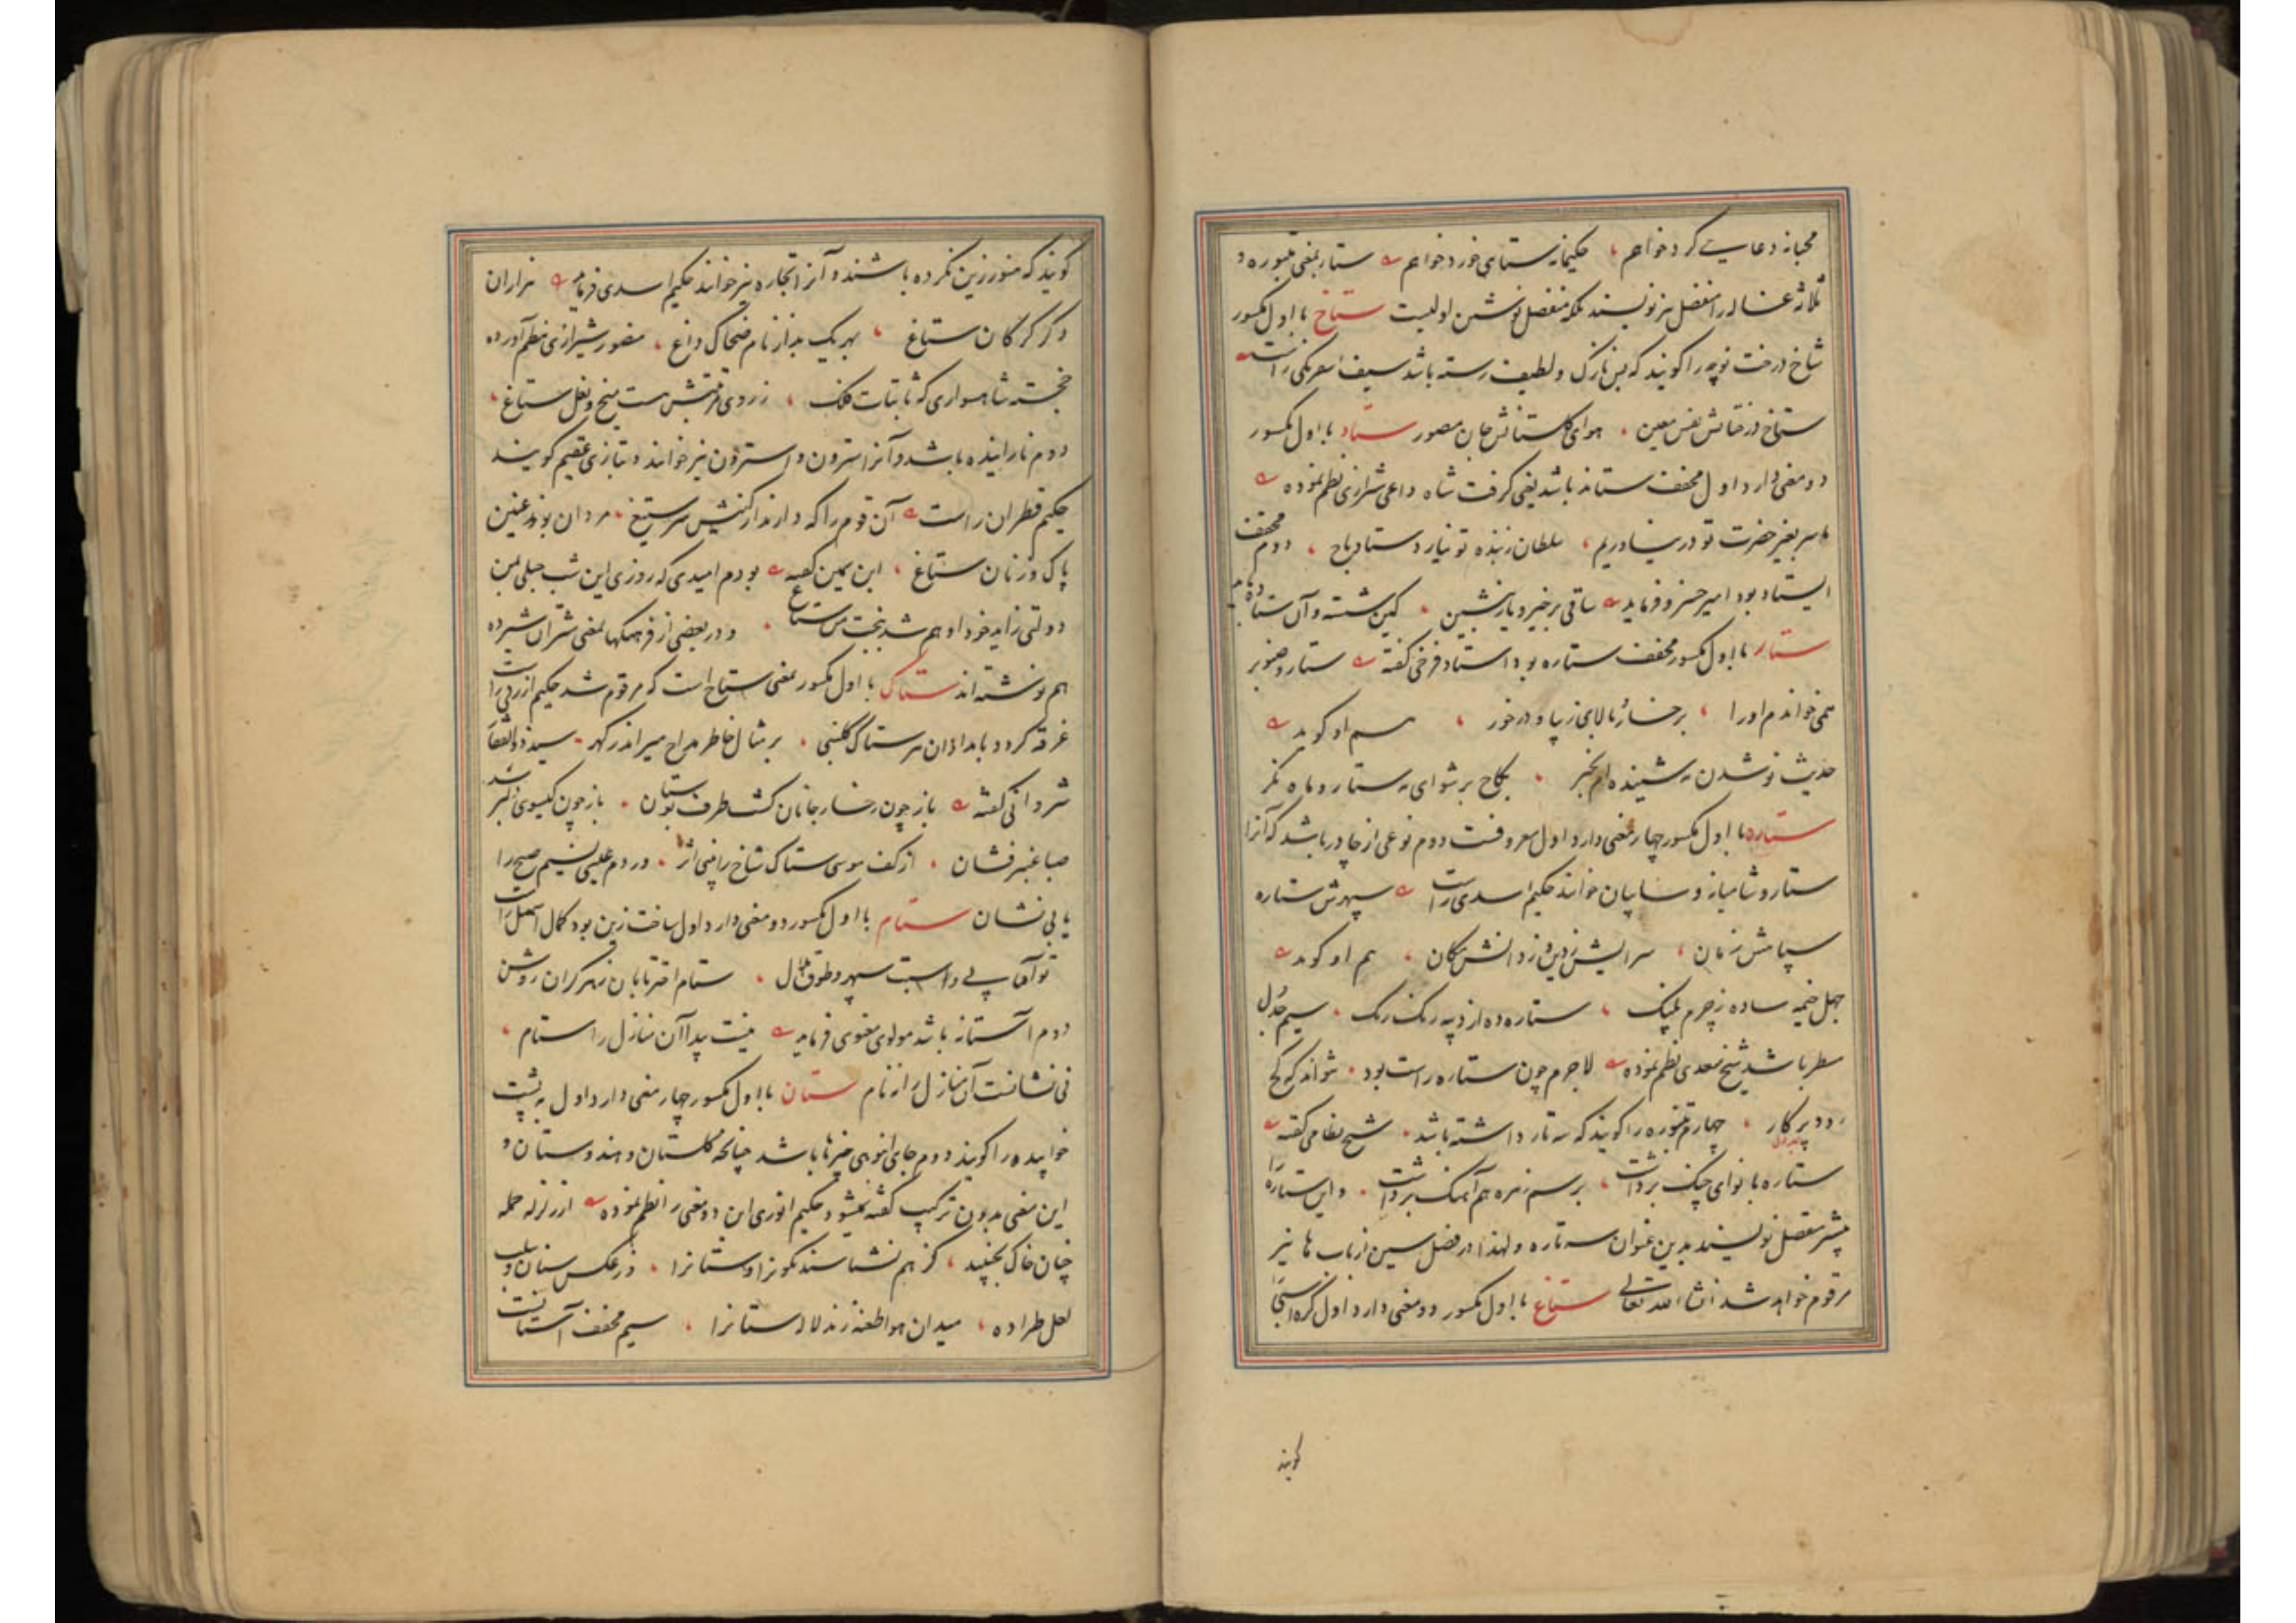 محبانه دعایت کرد خواهم ، حکیمانه ستایی خورد خواهم ستار بمعنی تنبوره و
ثلاثه غساله را منفصل نیز نویسند بلکه منفصل نوشتن اولیست ستاخ با اول مکسور
شاخ درخت نوچه را گویند که بس نازک و لطیف رسته باشد سیف اسفرنکی راست
ستاخ درختانش نفس معین ، هوای گلستانش جان مصور ستاد با اول مکسور
دو معنی دارد اول مخفف ستاند باشد یعنی گرفت شاه داعی شیرازی نظم نموده
ما سر بغیر حضرت تو در نیاوریم ، سلطان ز بنده تو نیارد ستاد باج ، دوم مخفف
ایستاد بود امیر خسرو فرماید ساقی برخیز و یار بنشین ، کین شسته و آن ستاده باید
ستار با اول مکسور مخفف ستاره بود استاد فرخی گفته ستار و صنوبر
همی خواندم او را ، برخساره بالای زیبا و درخور ، هم او گوید
حدیث نو شدن مه شنیده‌ام بخبر ، بکاخ برشو ای مه ستار و ماه نگر
ستاره با اول مکسور چهار معنی دارد اول معروفست دوم نوعی از چادر باشد که آنرا
ستار و شامیانه و سایبان خوانند حکیم اسدی راست سپهرش ستاره
سپاهش زمان ، سرایش زمین و ز دانش مکان ، هم او گوید
چهل خیمه ساده ز چرم پلنگ ، ستاره ده از دیبه رنگ رنگ ، سیم جدول
سطر باشد شیخ سعدی نظم نموده لاجرم چون ستاره راست بود ، نتواند که کج
رود پرکار ، چهارم تنبوره را گویند که سه تار داشته باشد ، شیخ نظامی گفته
ستاره با نوای چنگ برداشت ، برسم زهره هم آهنگ برداشت ، و این ستاره را
بیشتر منفصل نویسند بدین عنوان سه تاره ولهذا در فصل سین از باب ها نیز
مرقوم خواهد شد انشاء الله تعالی ستاغ با اول مکسور دو معنی دارد اول کره اسپی را
گویند
گویند که هنوز زین نکرده باشند و آنرا تجاره نیز خوانند حکیم اسدی فرماید هزاران
دگر کرگان ستاغ ، بهر یک بر از نام ضحاک داغ ، منصور شیرازی نظم آورده
خجسته شاهسواری که ثابتات فلک ، ز روی مرتبتش هست میخ و نعل ستاغ ،
دوم نازاینده باشد و آنرا سترون و استرون نیز خوانند و بتازی عقیم گویند
حکیم قطران راست آن قوم را که دارند از کینش سر ستیغ ، مردان بوند عنین
پاک و زنان ستاغ ، ابن یمین گفته بودم امیدی که روزی این شب حبلی بمن
دولتی زاید خود او هم شد ببخت من ستاغ ، و در بعضی از فرهنگها بمعنی شتران شیرده
هم نوشته‌اند ستاک با اول مکسور بمعنی ستاخ است که مرقوم شد حکیم ازرقی راست
غرقه گردد بامدادان هر ستاک گلبنی ، بر مثال خاطر مداح میر اندر گهر ، سید ذوالفقار
شروانی گفته باز چون رخسار جانان گشت طرف بوستان ، باز چون گیسوی دلبر شد
صبا عنبرفشان ، از کف موسی ستاک شاخ را بینی اثر ، در دم عیسی نسیم صبح را
یابی نشان ستام با اول مکسور دو معنی دارد اول ساخت زین بود کمال اسمعیل راست
دوم آستانه باشد مولوی معنوی فرماید نیست پیدا آن منازل را ستام ،
نی نشانست آن منازل را نه نام ستان با اول مکسور چهار معنی دارد اول به پشت
خوابیده را گویند دوم جای انبوهی چیزها باشد چنانچه گلستان و هندوستان و
این معنی بدون ترکیب گفته نمیشود حکیم انوری این دو معنی را نظم نموده از زلزله حمله
چنان خاک بجنبید ، کز هم نشناسند نگون را و ستان را ، در عکس سنان و سلب
لعل طراده ، میدان هوا طعنه زند لاله ستان را ، سیم مخفف آستانست